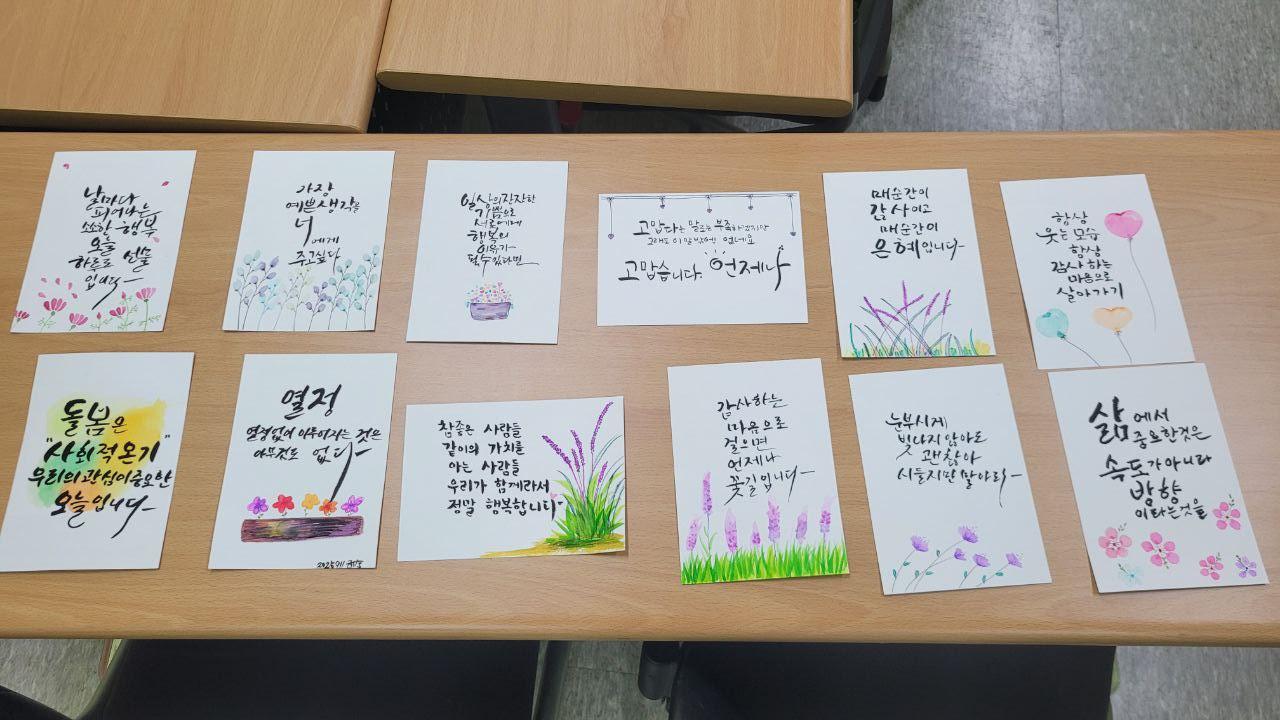 날마다
피어나는
소소한 행복
오늘
하루도 선물
입니다
가장
예쁜생각을
너에게
주고싶다
일상의 잔잔한
기쁨으로
서로에게
행복의
이유가
될수있다면
고맙다는 말로는 부족하겠지만
그래도 이말밖에 없네요
고맙습니다. 언제나
매순간이
감사이고
매순간이
은혜입니다
항상
웃는모습
항상
감사하는
마음으로
살아가기
돌봄은
"사회적온기"
우리의관심이중요한
오늘입니다
열정
열정없이 이루어지는 것은
아무것도 없다
참좋은 사람들
같이의 가치를
아는 사람들
우리가 함께라서
정말 행복합니다
감사하는
마음으로
걸으면
언제나
꽃길입니다
눈부시게
빛나지 않아도
괜찮아
시들지만 말아라
삶에서
중요한것은
속도가아니다
방향
이라는것을